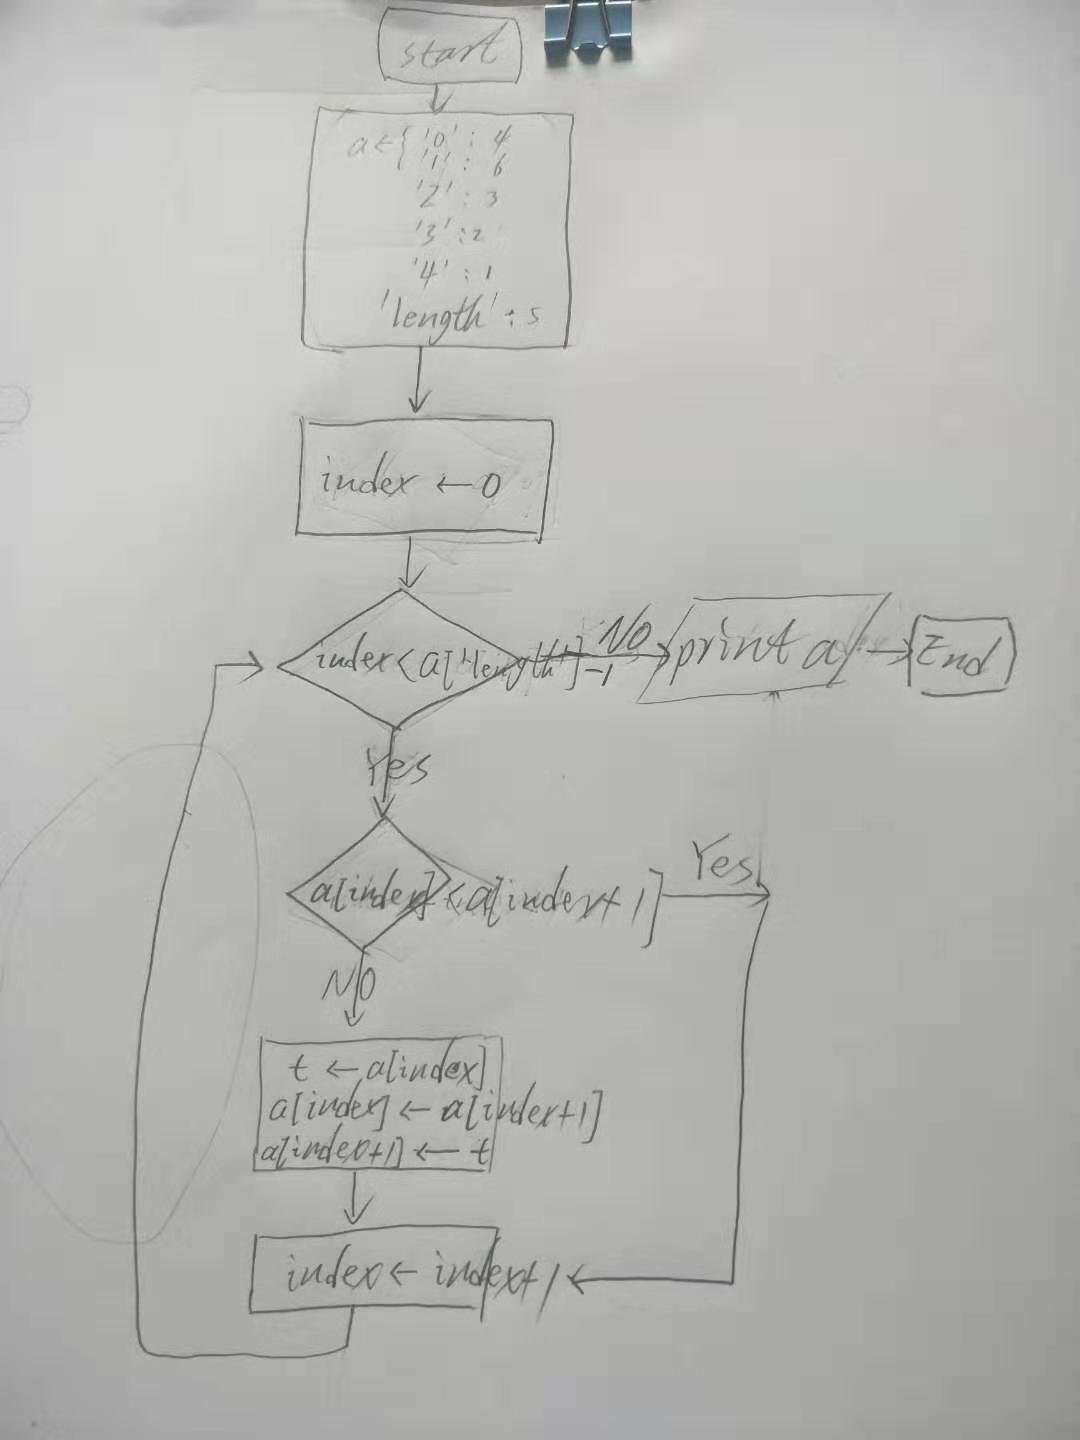 start
a←{'0' : 4
'1' : 6
'2' : 3
'3' : 2
'4' : 1
'length' : 5
index ← 0
index < a['length']-1
No
print a
End
Yes
a[index] < a[index+1]
Yes
NO
t ← a[index]
a[index] ← a[index+1]
a[index+1] ← t
index ← index+1